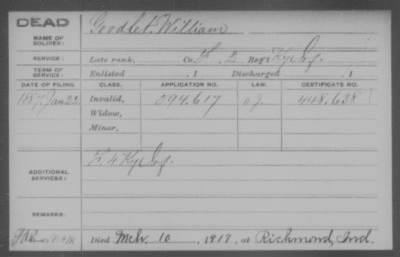 DEAD
NAME OF SOLDIER: Goodlet, William
SERVICE: Late rank, Co. Reg't Ky Inf.
TERM OF SERVICE: Enlisted , 1 Discharged , 1
DATE OF FILING. CLASS. APPLICATION NO. LAW. CERTIFICATE NO.
1887 Jan 22 Invalid, 594.617 448.638
Widow,
Minor,
ADDITIONAL SERVICES: F 4 Ky Inf.
REMARKS:
Died Mch. 10, 1917, at Richmond, Ind.